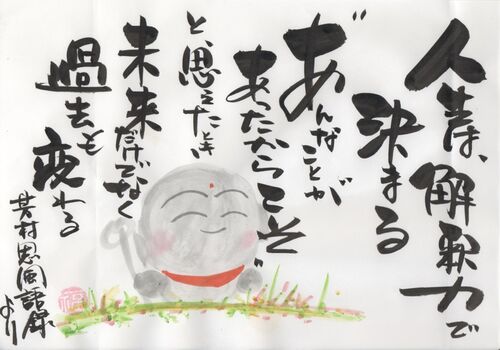 人生は、解釈力で
決まる
あんなことが
あったからこそ
と、思えたとき
未来だけでなく
過去も
変わる
芳村思風語録
より
福